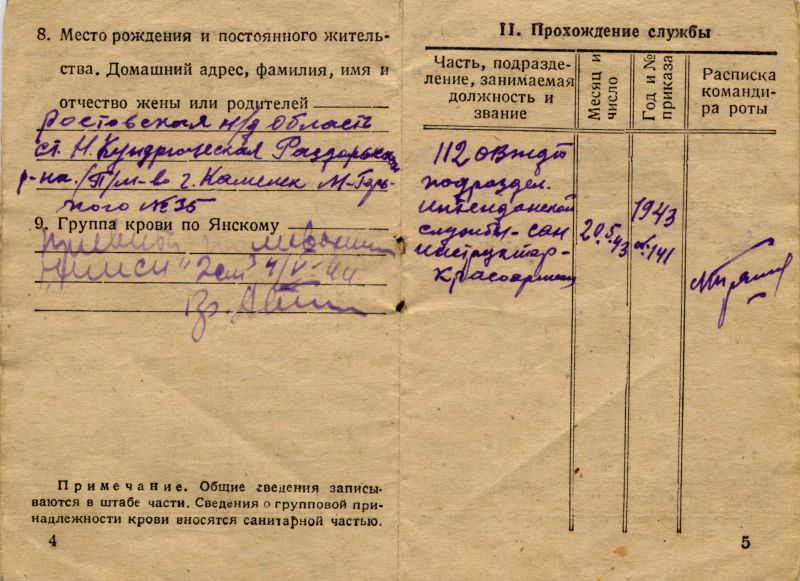 8. Место рождения и постоянного житель-
ства. Домашний адрес, фамилия, имя и
отчество жены или родителей
Ростовская н/д область
ст. Н. Кундрюческая Раздорьская
р-на. /П/м-во г. Каменск М-Горь-
кого № 35
9. Группа крови по Янскому
2 см³ 4/V-44
Вр.
Примечание. Общие сведения записы-
ваются в штабе части. Сведения о групповой при-
надлежности крови вносятся санитарной частью.
4
II. Прохождение службы
Часть, подразде-
ление, занимаемая
должность и
звание
Месяц и
число
Год и №
приказа
Расписка
команди-
ра роты
112
подраздел.
интенданской
службы - сан
инструктор -
красоармеец
20.5.43
1943
№ 141
5